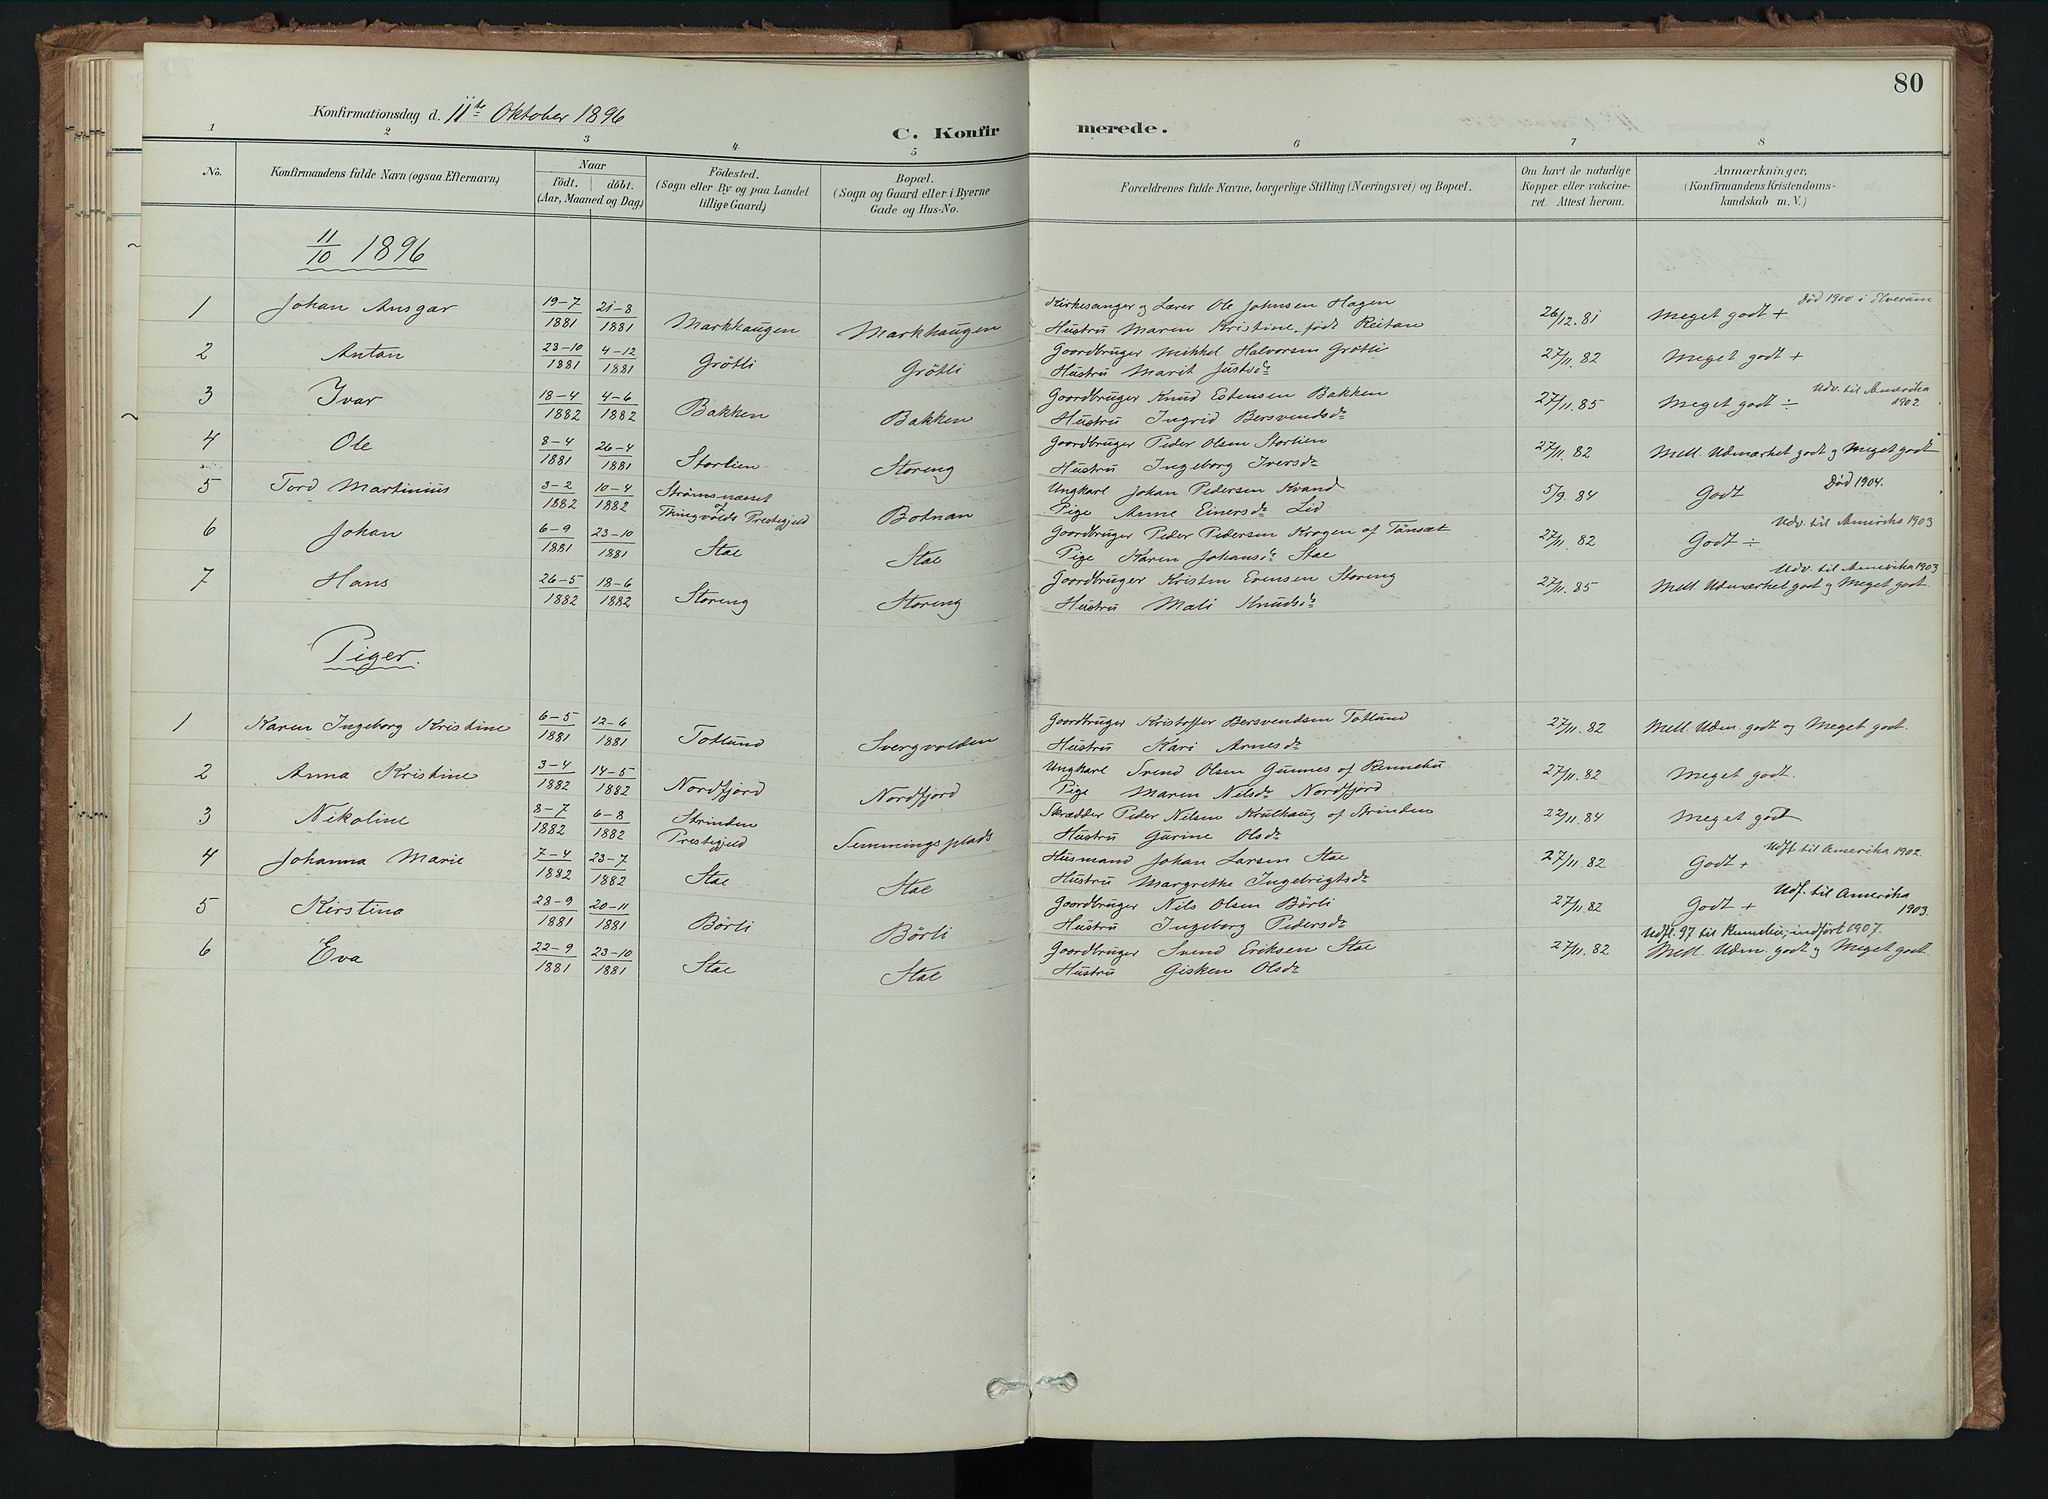 80
Konfirmationsdag d. 11te Oktober 1896
C. Konfirmerede.
1 2 3 4 5 6 7 8
No.
Konfirmandens fulde Navn (ogsaa Efternavn)
Naar
født. døbt.
(Aar, Maaned og Dag)
Fødested.
(Sogn eller By og paa Landet
tillige Gaard)
Bopæl.
(Sogn og Gaard eller i Byerne
Gade og Hus-No.
Forældrenes fulde Navne, borgerlige Stilling (Næringsvei) og Bopæl.
Om havt de naturlige
Kopper eller vakcine-
ret. Attest herom.
Anmærkninger,
(Konfirmandens Kristendoms-
kundskab m. V.)
11/10 1896
1 Johan Ansgar 19-7 1881 21-8 1881 Markhaugen Markhaugen Kirkesanger og Lærer Ole Johnsen Hagen 26/12.81 Meget godt + Død 1900 i Elverum
Hustru Maren Kristine, født Reitan
2 Antan 23-10 1881 4-12 1881 Grötli Grötli Gaardbruger Mikkel Halvorsen Grötli 27/11.82 Meget godt +
Hustru Marit Justsdr
3 Ivar 18-4 1882 4-6 1882 Bakken Bakken Gaardbruger Knud Estensen Bakken 27/11.85 Meget godt ÷ Udv. til Amerika 1902
Hustru Ingrid Bersvendsdr
4 Ole 8-4 1881 26-4 1881 Storlien Storeng Gaardbruger Peder Olsen Storlien 27/11.82 Mell. Udmærket godt og Meget godt
Hustru Ingeborg Iversdr
5 Tord Martinius 3-2 1882 10-4 1882 Strömsnæsset af Thingvolds Prestegjeld Botnan Ungkarl Johan Pedersen Kvand 5/9.84 Godt Död 1904.
Pige Anne Einersdr Lid
6 Johan 6-9 1881 23-10 1881 Stae Stae Gaardbruger Peder Pedersen Krogen af Tönsæt 27/11.82 Godt ÷ Udv. til Amerika 1903
Pige Karen Johansdr Stae
7 Hans 26-5 1882 18-6 1882 Storeng Storeng Gaardbruger Kristen Evensen Storeng 27/11.85 Mell. Udmærket godt og Meget godt. Udv. til Amerika 1903
Hustru Mali Knudsdr
Piger.
1 Karen Ingeborg Kristine 6-5 1881 12-6 1881 Totlund Svergvolden Gaardbruger Kristoffer Bersvendsen Totlund 27/11.82 Mell. Udm. godt og Meget godt.
Hustru Kari Arnesdr
2 Anna Kristine 3-4 1882 14-5 1882 Nordfjord Nordfjord Ungkarl Svend Olsen Gunnes af Rennebu 27/11.82 Meget godt.
Pige Maren Nilsdr Nordfjord
3 Nikoline 8-7 1882 6-8 1882 Strinden Prestegjeld Semmingsplads Skrædder Peder Nilsen Krulhaug af Strinden 22/11.84 Meget godt
Hustru Gurine Olsdr
4 Johanna Marie 7-4 1882 23-7 1882 Stae Stae Husmand Johan Larsen Stae 27/11.82 Godt + Udfl. til Amerika 1902.
Hustru Margrethe Ingebrigtsdr
5 Kirstina 23-9 1881 20-11 1881 Börli Börli Gaardbruger Nils Olsen Börli 27/11.82 Godt + Udf. til Amerika 1903.
Hustru Ingeborg Pedersdr
6 Eva 22-9 1881 23-10 1881 Stae Stae Gaardbruger Svend Eriksen Stae 27/11.82 Udfl. 97 til Rennebu; indfört 1907.
Mell. Udm. godt og Meget godt.
Hustru Gisken Olsdr